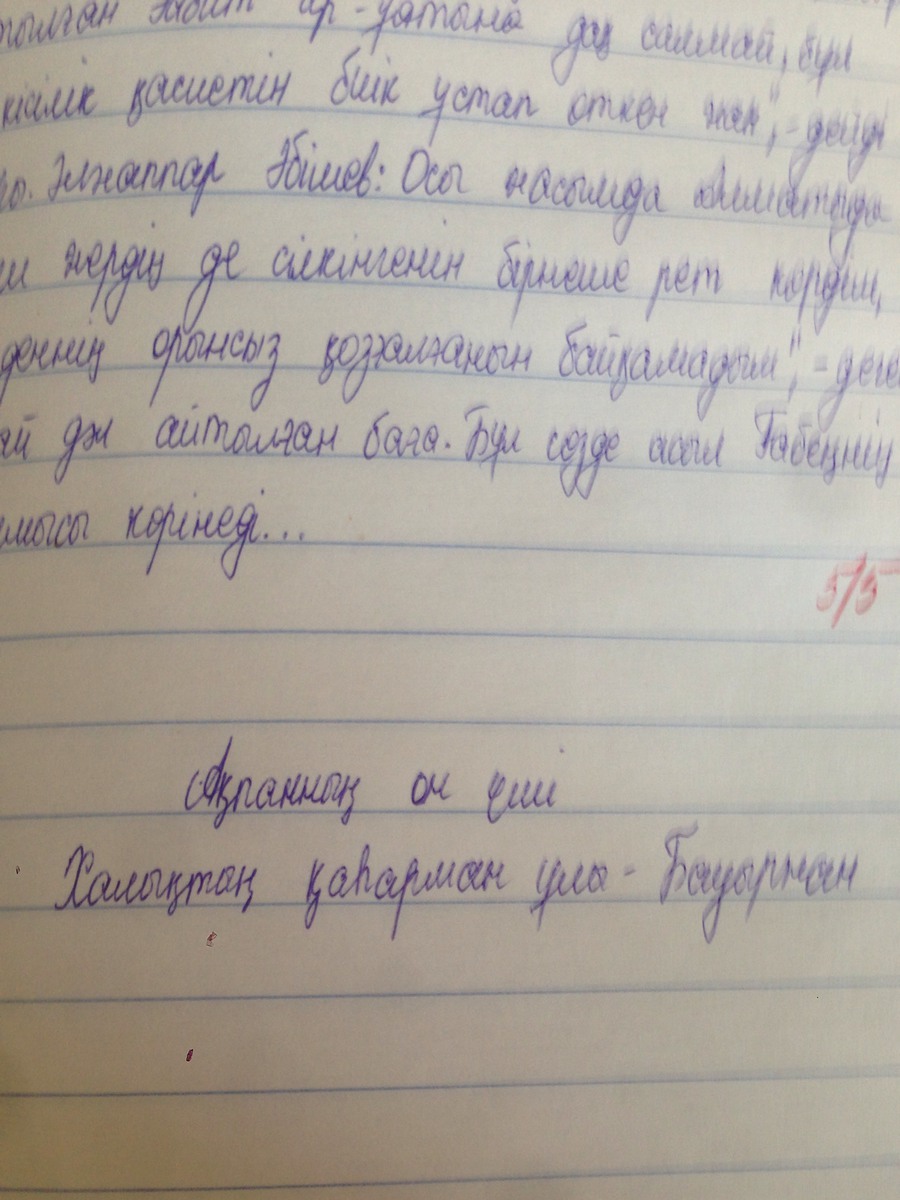 тылған Ғабит ар-ұятына дақ салмай, бұл
кісілік қасиетін биік ұстап өткен жан", - дейді
Әлжаппар Әбішев: Осы жасымда Алматыда
жердің де сілкінгенін бірнеше рет көрдім,
орынсыз қозғалғанын байқамадым", - деге
дәл айтылған баға. Бұл сөзде асыл Ғабеңнің
көрінеді...
5/5
Ақпанның он үші
Халықтың қаһарман ұлы - Бауыржан